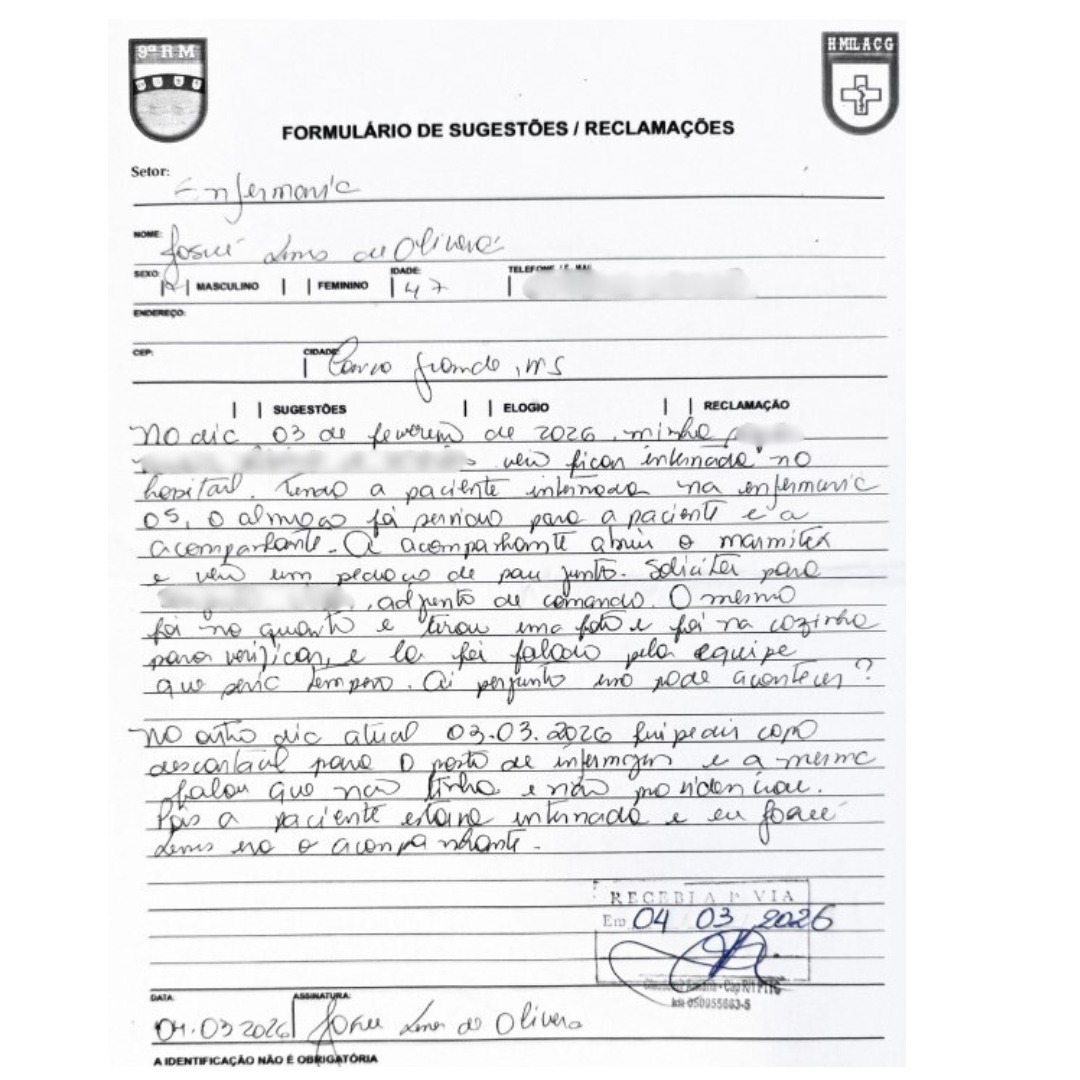 9ª R M
H MIL A C G
FORMULÁRIO DE SUGESTÕES / RECLAMAÇÕES
Setor:
Enfermaria
NOME:
Josué Lemos de Oliveira
SEXO: IDADE: TELEFONE / E-MAIL
| | MASCULINO | | FEMININO | 47 |
ENDEREÇO:
CEP: CIDADE:
| Campo Grande, MS
| | SUGESTÕES | | ELOGIO | | RECLAMAÇÃO
No dia 03 de fevereiro de 2026, minha
veio ficar internada no
hospital. Tendo a paciente internada na enfermaria
05, o almoço foi servido para a paciente e a
acompanhante. A acompanhante abriu o marmitex
e veio um pedaço de pau junto. Solicitei para
, adjunto de comando. O mesmo
foi no quarto e tirou uma foto e foi na cozinha
para verificar, e lá foi falado pela equipe
que seria tempero. Aí pergunto isso pode acontecer?
No outro dia atual 03.03.2026 fui pedir copo
descartável para o posto de enfermagem e a mesma
falou que não tinha e não providenciou.
Pois a paciente estava internada e eu Josué
Lemos era o acompanhante.
RECEBI A 1ª VIA
Em 04 03 2026
Cap R/1 PTTC
Idt 050955863-5
DATA: ASSINATURA:
04.03 2026 | Josué Lemos de Oliveira
A IDENTIFICAÇÃO NÃO É OBRIGATÓRIA